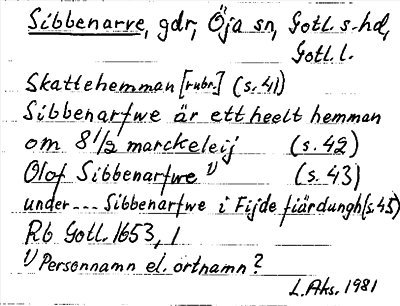 Sibbenarve, gdr, Öja sn, Gotl. s. hd,
Gotl. l.
Skattehemman [rubr.] (s. 41)
Sibbenarfwe är ett heelt hemman
om 8 1/2 marckeleij (s. 42)
Olof Sibbenarfwe 1) (s. 43)
under --- Sibbenarfwe i Fijde fiärdungh (s. 45)
Rb Gotl. 1653, 1
1) Personnamn el. ortnamn?
L. Aks. 1981